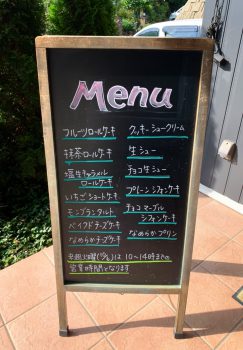 Menu
フルーツロールケーキ
抹茶ロールケーキ
塩生キャラメル
ロールケーキ
いちごショートケーキ
モンブランタルト
ベイクドチーズケーキ
なめらかチーズケーキ
クッキーシュークリーム
生シュー
チョコ生シュー
プレーンシフォンケーキ
チョコマーブル
シフォンケーキ
なめらかプリン
は 10〜14時までの
営業時間となります